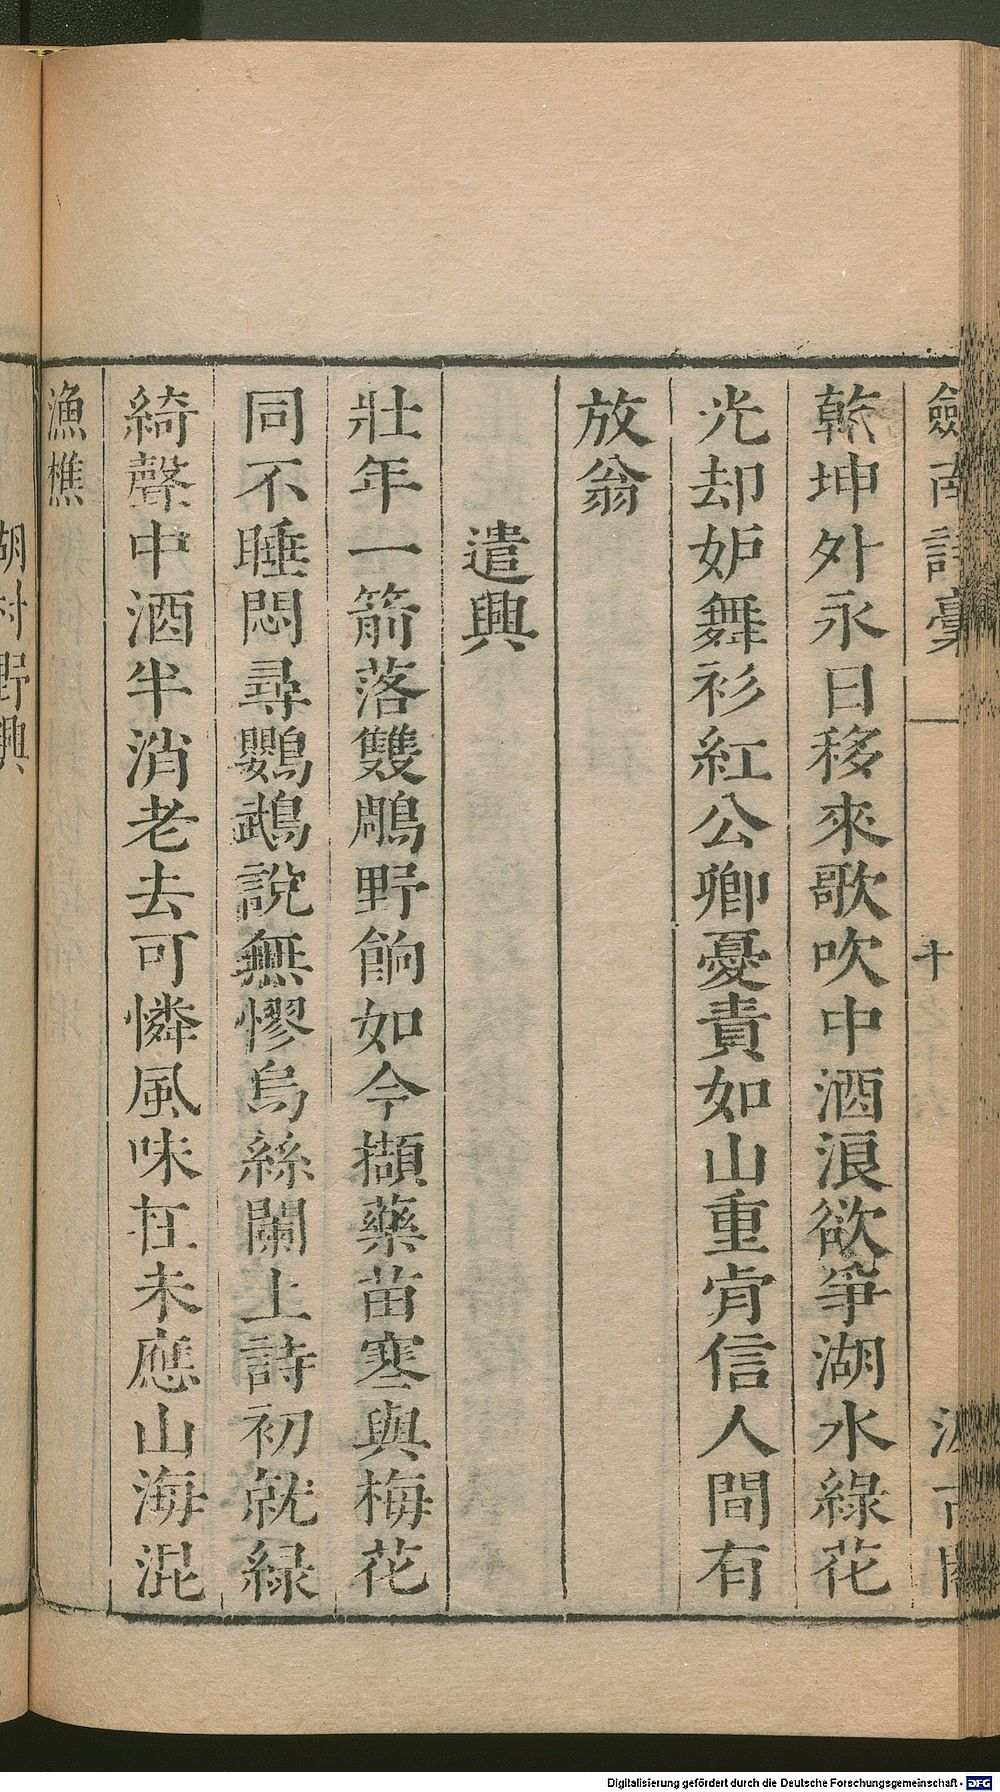 劒南詩稾 十 汲古閣
乾坤外永日移來歌吹中酒浪欲爭湖水綠花
光却妒舞衫紅公卿憂責如山重肯信人間有
放翁
遣興
壯年一箭落雙鵰野餉如今擷藥苗寒與梅花
同不睡悶尋鸚鵡說無憀烏絲闌上詩初就緑
綺聲中酒半消老去可憐風味在未應山海混
漁樵
湖村野興
Digitalisierung gefördert durch die Deutsche Forschungsgemeinschaft - DFG